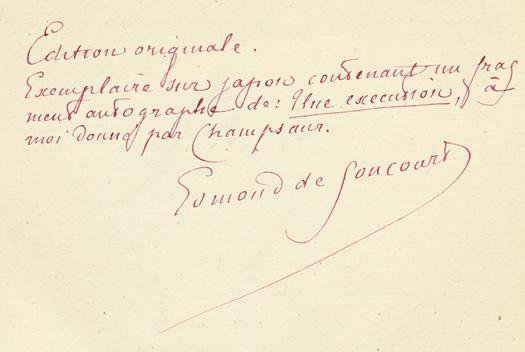 Edition originale.
Exemplaire sur japon contenant un frag
ment autographe de: Une execution, à
moi donné par Champsaur.
Edmond de Goncourt